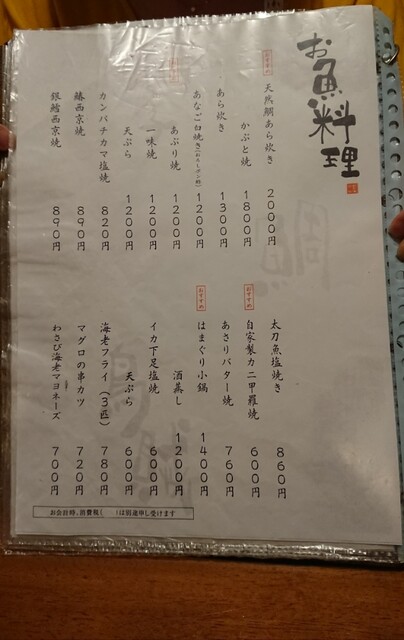 お魚料理
おすすめ
天然鯛あら炊き 2000円
かぶと焼 1800円
あら炊き 1300円
あなご白焼き(おろしポン酢) 1200円
おすすめ
あぶり焼 1200円
一味焼 1200円
天ぷら 1200円
カンパチカマ塩焼 820円
鰆西京焼 890円
銀鱈西京焼 890円
太刀魚塩焼き 860円
おすすめ
自家製カニ甲羅焼 600円
あさりバター焼 760円
おすすめ
はまぐり小鍋 1400円
酒蒸し 1200円
イカ下足塩焼 600円
天ぷら 600円
海老フライ(3匹) 780円
マグロの串カツ 720円
わさび海老マヨネーズ 700円
お会計時、消費税( )は別途申し受けます